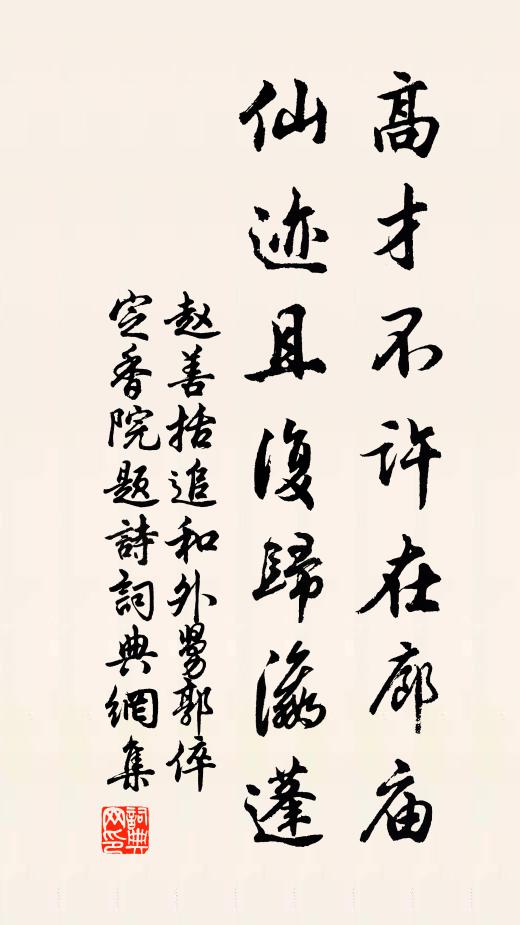 高才不许在廊庙
仙迹且復歸瀛蓬
赵善括追和外舅郭倅
定香院题詩詞典網集
詞典
网印